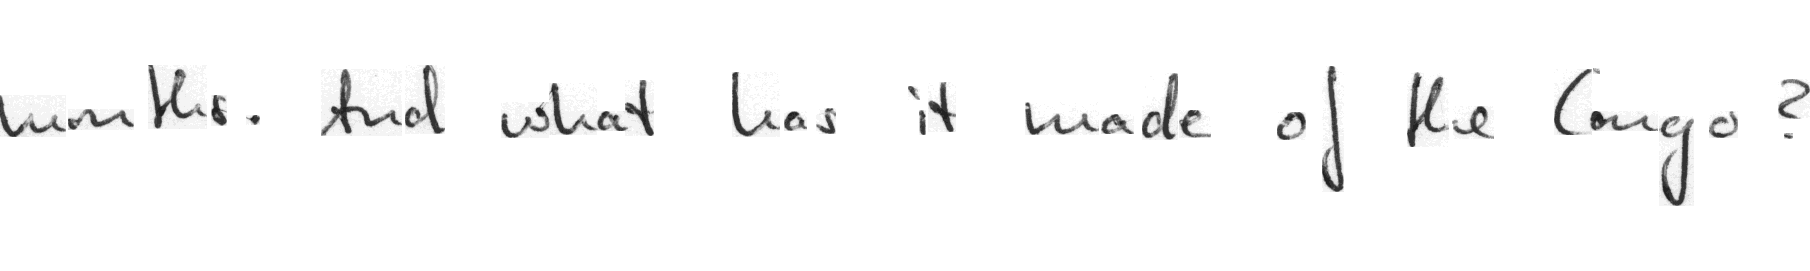 months. And what has it made of the Congo?